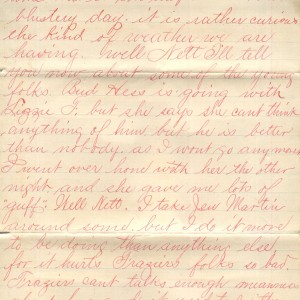 blustery day. it is rather curious
the kind of weather we are
having. Well Nett I'll tell
you now about some of the young
folks. Bud Hess is going with
Lizzie F. but she says she cant think
anything of him but he is better
than nobody. as I wont go anymore
I went over home with her the other
night and she gave me lots of
"guff". Well Nett. I take Jen Martin
around some, but I do it more
to be doing than anything else,
for it hurts Fraziers folks so bad.
Fraziers cant talks enough meanness